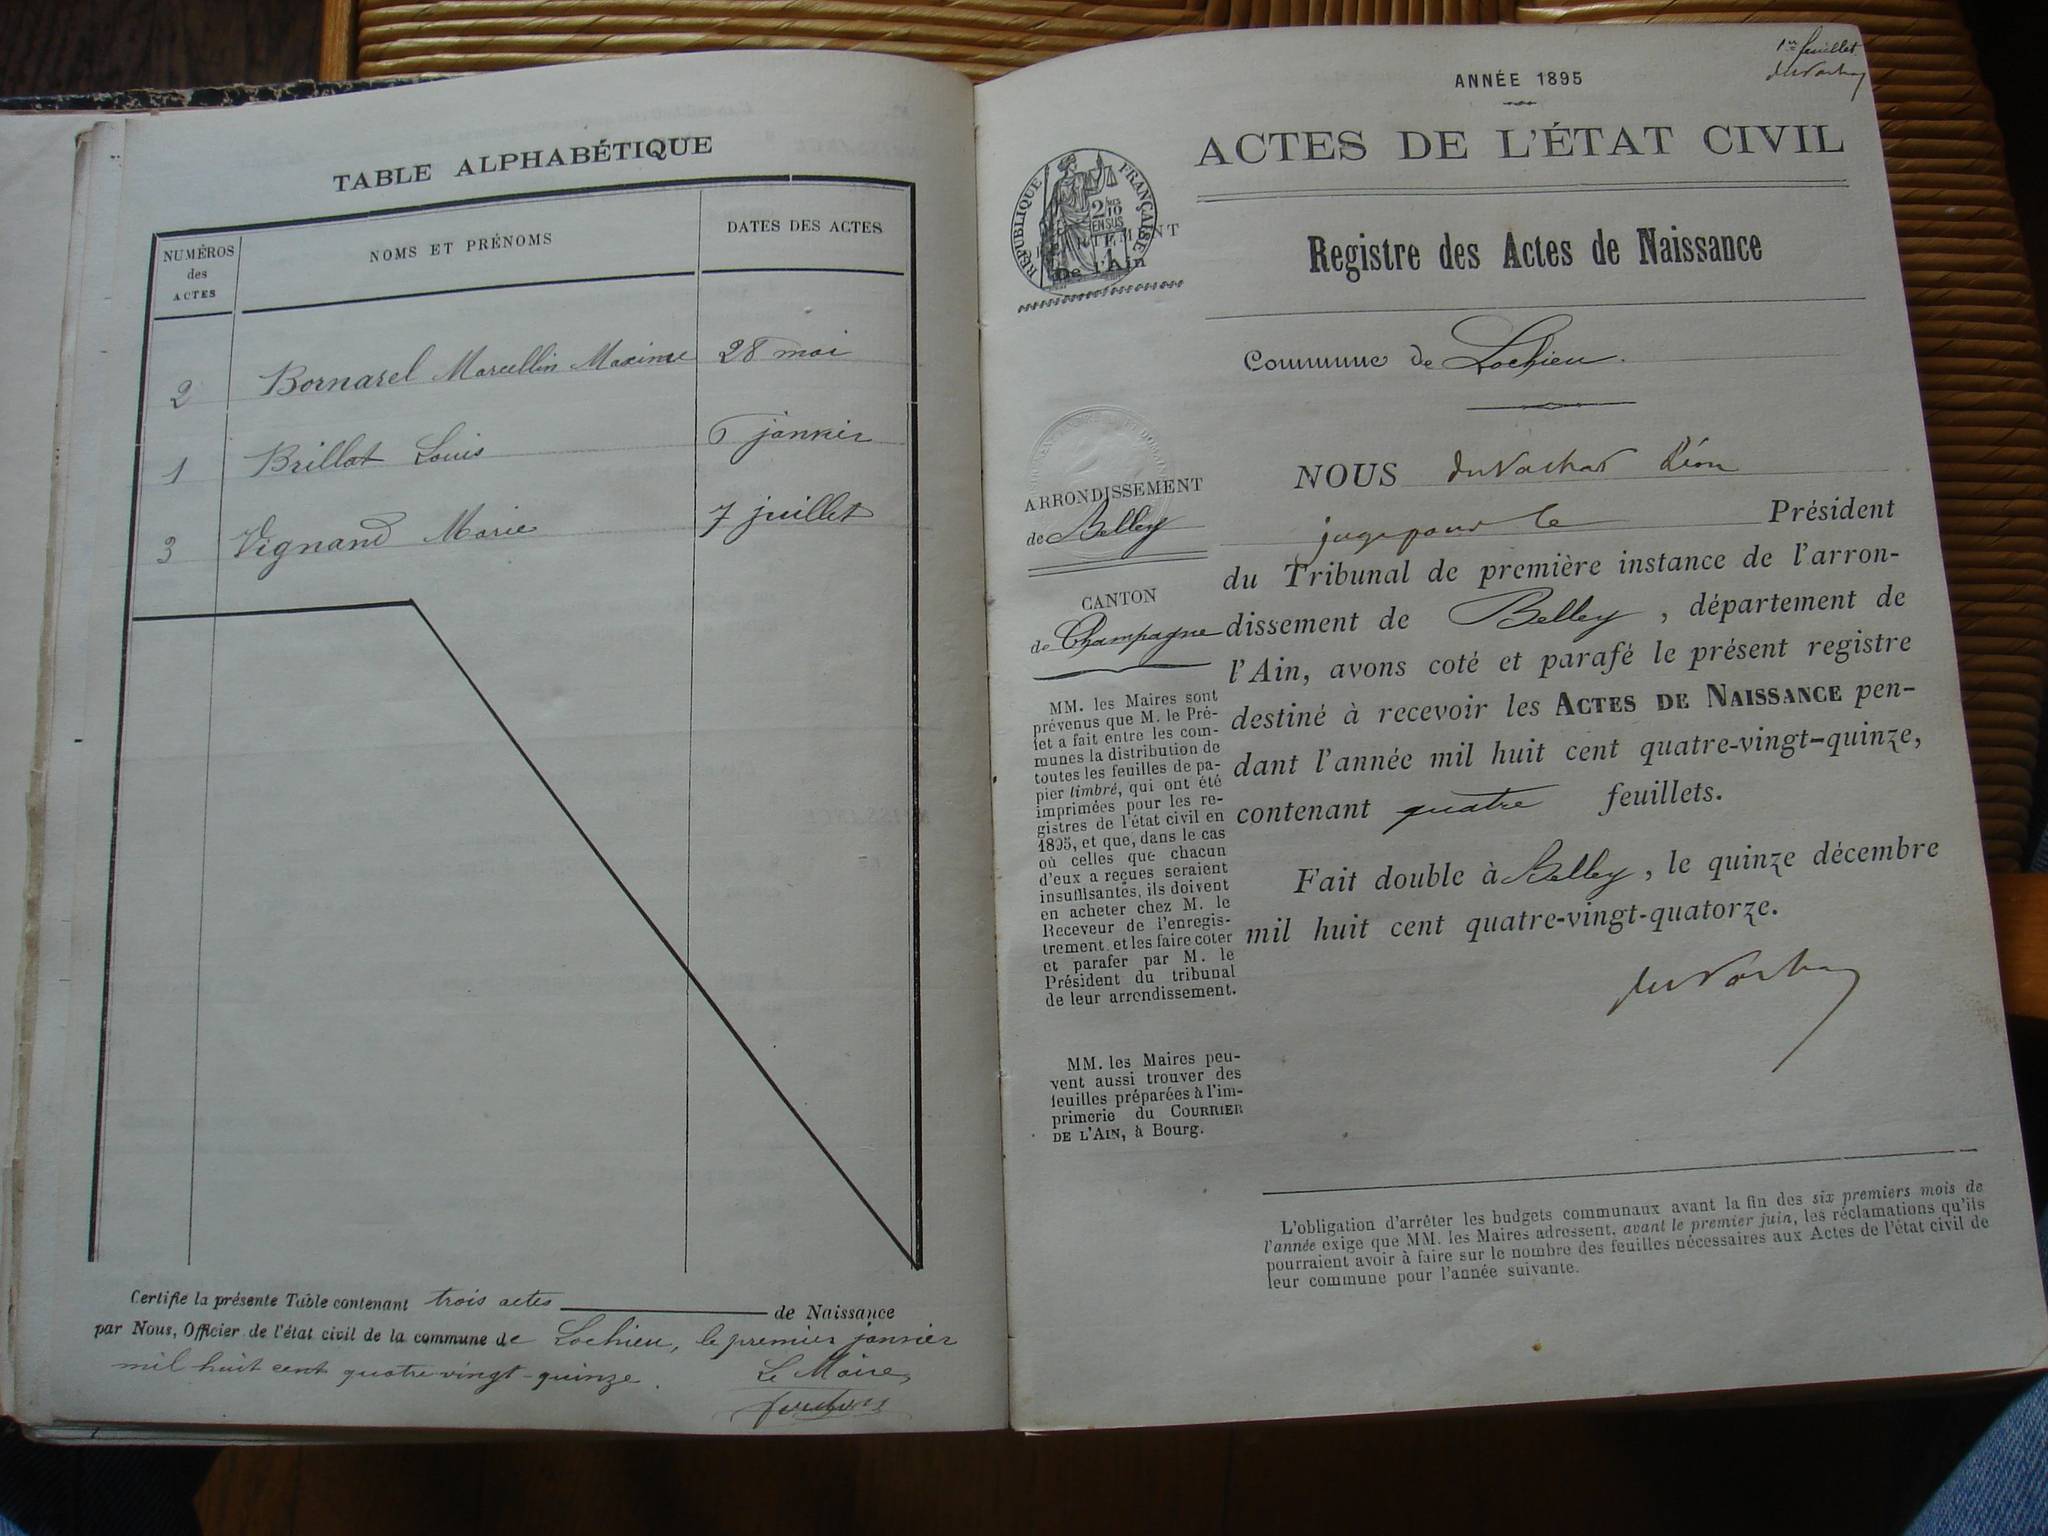 TABLE ALPHABÉTIQUE
NUMÉROS
des
ACTES
NOMS ET PRÉNOMS
DATES DES ACTES
2 Bornarel Marcellin Maxime 28 mai
1 Brillat Louis 6 janvier
3 Vignand Marie 7 juillet
Certifie la présente Table contenant trois actes de Naissance
par Nous, Officier de l'état civil de la commune de Lochieu, le premier janvier
mil huit cent quatre vingt-quinze.
Le Maire,
1er feuillet
ANNÉE 1895
ACTES DE L'ÉTAT CIVIL
RÉPUBLIQUE FRANÇAISE
2/10
EN SUS
De l'Ain
Registre des Actes de Naissance
Commune de Lochieu.
ARRONDISSEMENT
de Belley
CANTON
de Champagne
MM. les Maires sont
prévenus que M. le Pré-
fet a fait entre les com-
munes la distribution de
toutes les feuilles de pa-
pier timbré, qui ont été
imprimées pour les re-
gistres de l'état civil en
1895, et que, dans le cas
où celles que chacun
d'eux a reçues seraient
insuffisantes, ils doivent
en acheter chez M. le
Receveur de l'enregis-
trement et les faire coter
et parafer par M. le
Président du tribunal
de leur arrondissement.
MM. les Maires peu-
vent aussi trouver des
feuilles préparées à l'im-
primerie du COURRIER
DE L'AIN, à Bourg.
NOUS Léon
juge pour le Président
du Tribunal de première instance de l'arron-
dissement de Belley, département de
l'Ain, avons coté et parafé le présent registre
destiné à recevoir les ACTES DE NAISSANCE pen-
dant l'année mil huit cent quatre-vingt-quinze,
contenant quatre feuillets.
Fait double à Belley, le quinze décembre
mil huit cent quatre-vingt-quatorze.
L'obligation d'arrêter les budgets communaux avant la fin des six premiers mois de
l'année exige que MM. les Maires adressent, avant le premier juin, les réclamations qu'ils
pourraient avoir à faire sur le nombre des feuilles nécessaires aux Actes de l'état civil de
leur commune pour l'année suivante.